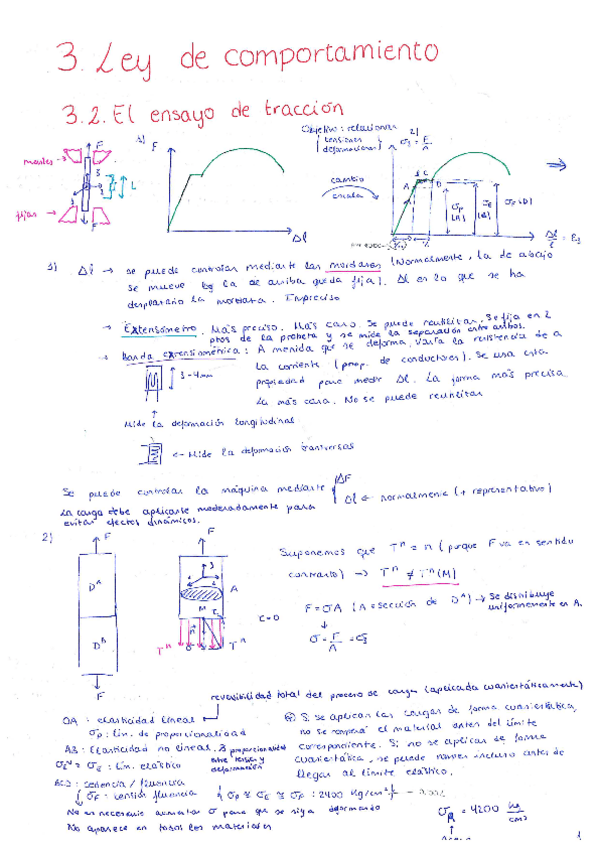 3. Ley de comportamiento
3.2. El ensayo de tracción
Objetivo: relaciones
tensiones
deformaciones
1)
F
Δl
móviles →
fijas →
F
F
L
cambio
escala
2)
σ3 = F/A
A
B
C
D
Δl/l = ε3
1) Δl → se puede controlar mediante las mordazas (Normalmente, la de abajo
se mueve y la de arriba queda fija). Δl es lo que se ha
desplazado la mordaza. Impreciso
→ Extensómetro. Más preciso. Más caro. Se puede reutilizar. Se fija en 2
ptos de la probeta y se mide la separación entre ambos.
→ Banda extensométrica: A medida que se deforma, varía la resistencia de a
la corriente (prop. de conductores). Se usa esta
propiedad para medir Δl. La forma más precisa
La más cara. No se puede reutilizar
3-4mm
Mide la deformación longitudinal
← Mide la deformación transversal
Se puede controlar la máquina mediante
ΔF
Δl ← normalmente (+ representativo)
La carga debe aplicarse moderadamente para
evitar efectos dinámicos.
2)
F
F
D^A
D^B
F
A
M
T^n
T^n
τ=0
Suponemos que T^n = n (porque F va en sentido
contrario) → T^n ≠ T^n(M)
F = σA (A = sección de D^A) → Se distribuye
uniformemente en A.
σ = F/A = σ3
reversibilidad total del proceso de carga (aplicada cuasiestáticamente)
OA: elasticidad lineal
σp: lím. de proporcionalidad
AB: Elasticidad no lineal. proporcionalidad
entre tensión y
deformación
σE: lím. elástico
BCD: cedencia / fluencia
σF: tensión fluencia
σp ≈ σE ≈ σF: 2400 Kg/cm²
No es necesario aumentar σ para que se siga deformando
No aparece en todos los materiales
Si se aplican las cargas de forma cuasiestática,
no se romperá el material antes del límite
correspondiente. Si no se aplican de forma
cuasiestática, se puede romper incluso antes de
llegar al límite elástico.
σR = 4200 kg/cm²
1